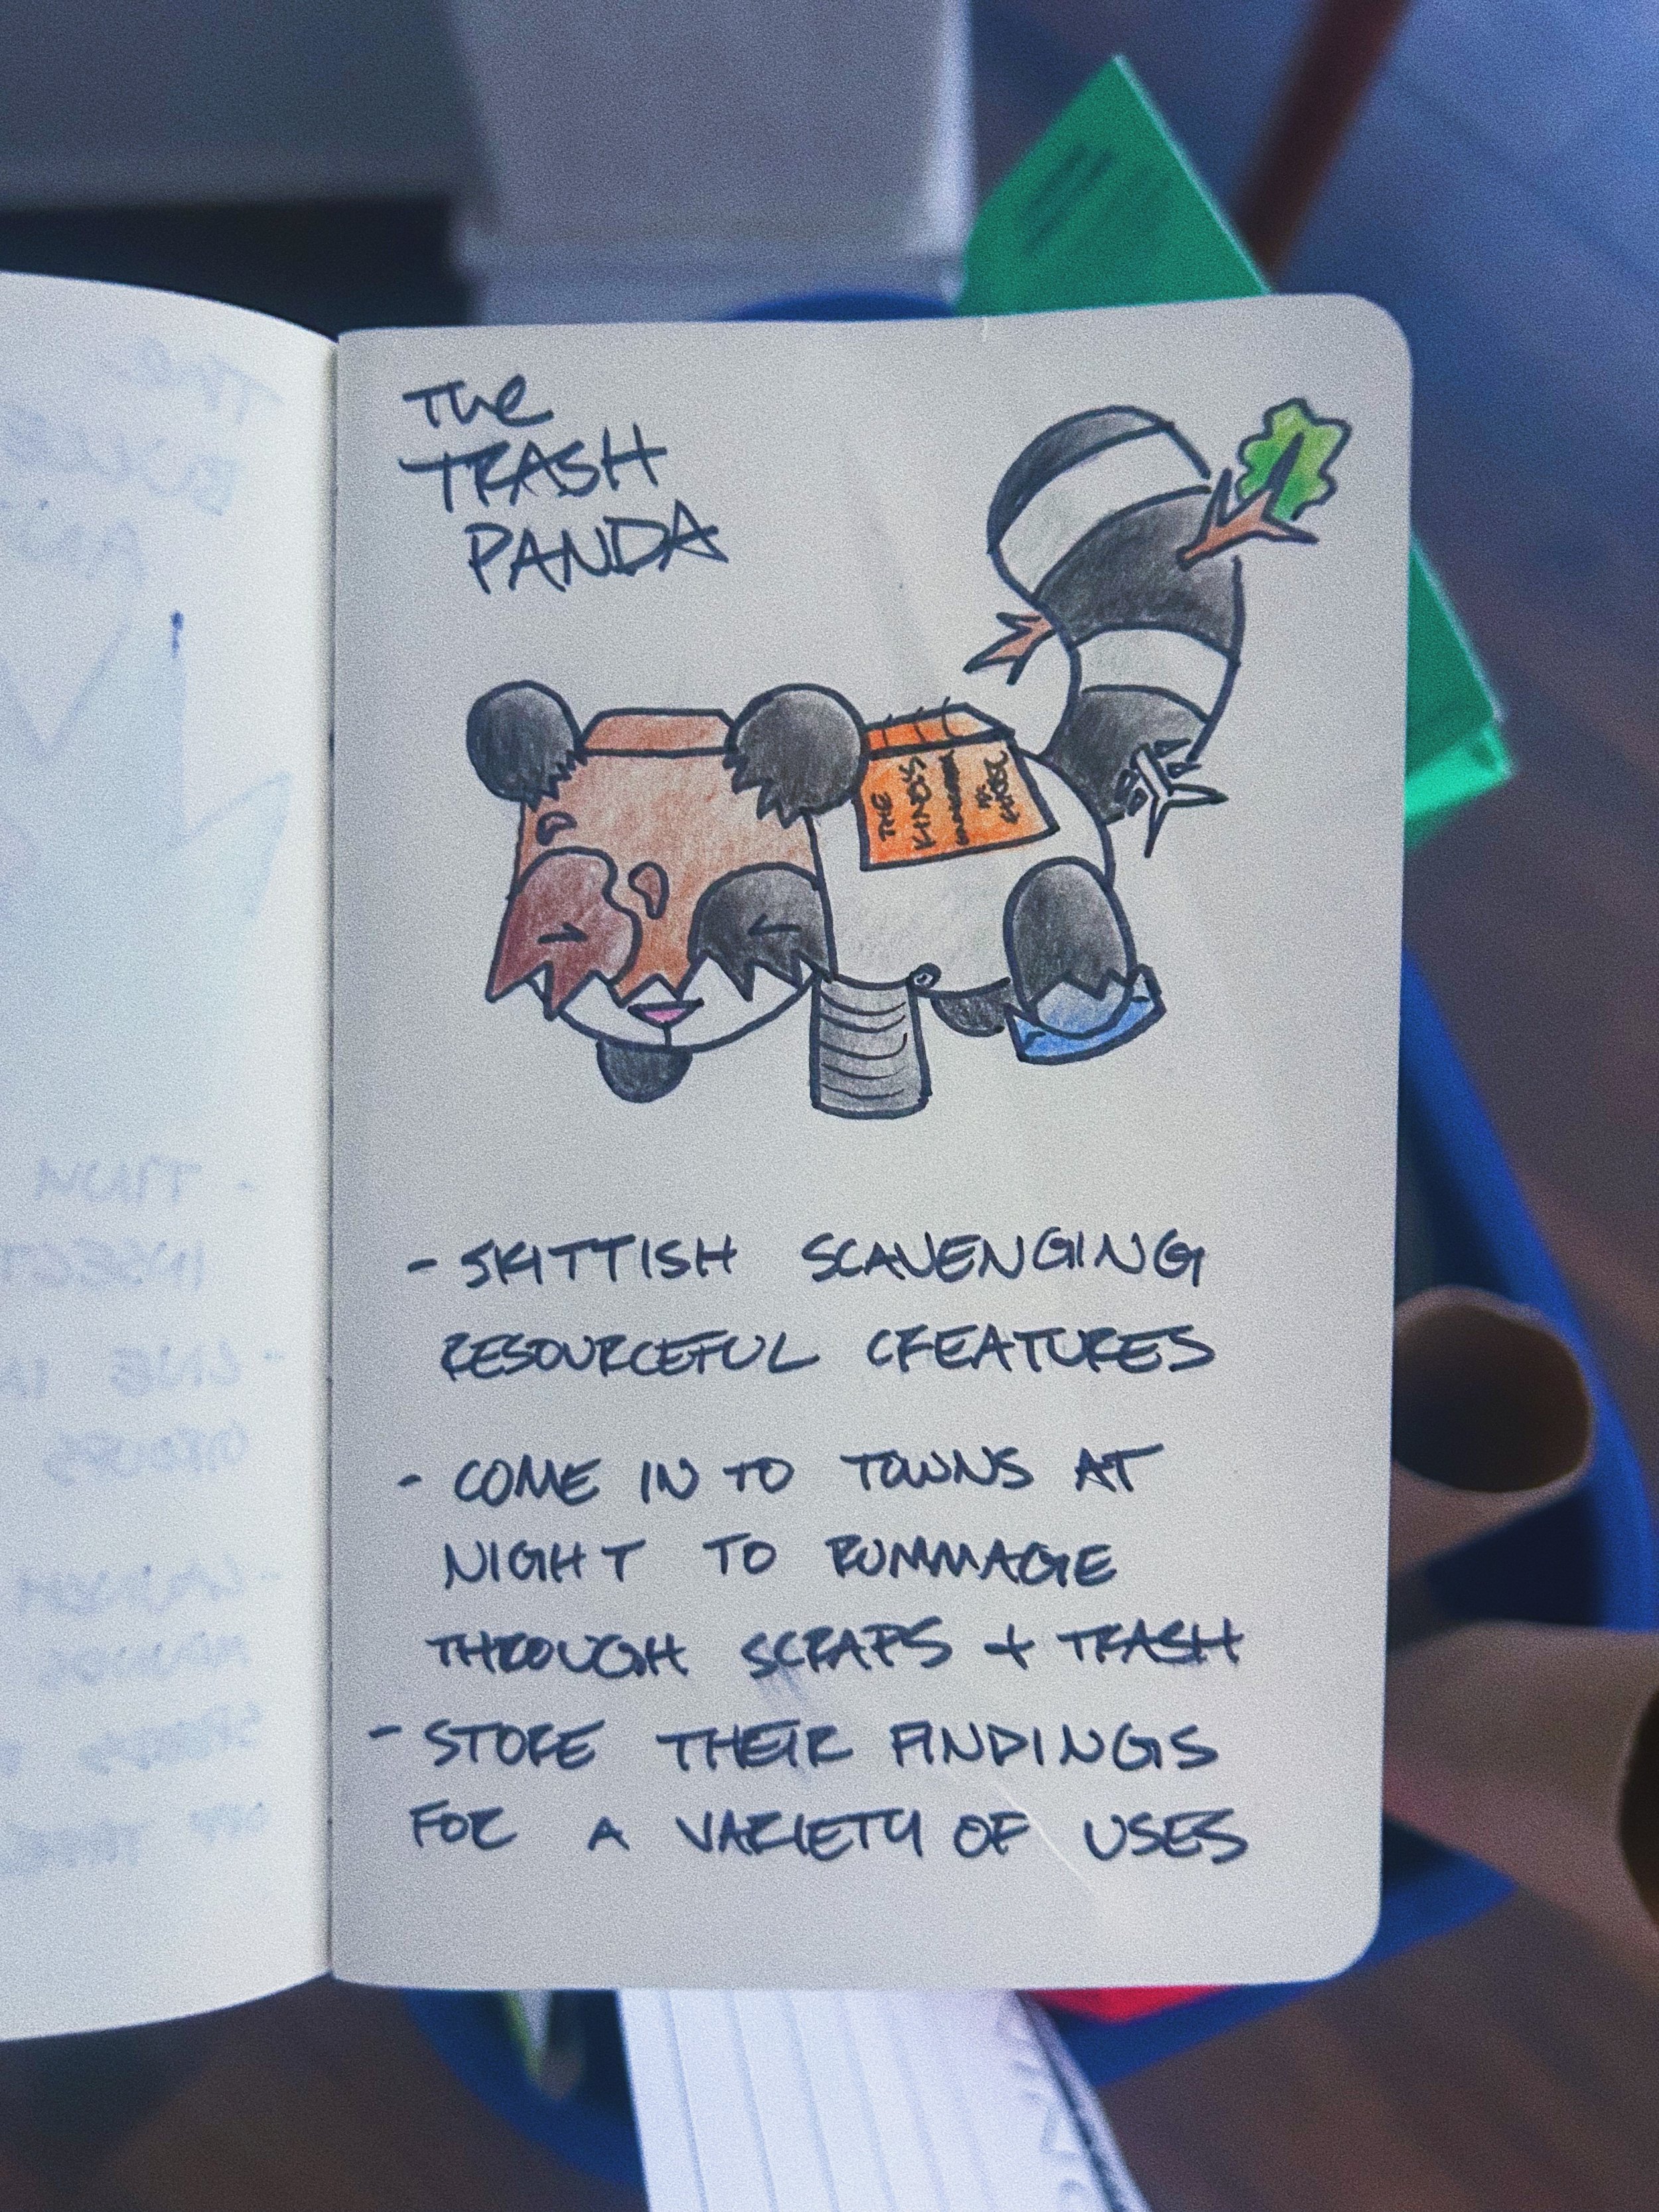 THE
TRASH
PANDA
THE
KIND'S
- SKITTISH SCAVENGING
RESOURCEFUL CREATURES
- COME IN TO TOWNS AT
NIGHT TO RUMMAGE
THROUGH SCRAPS + TRASH
- STORE THEIR FINDINGS
FOR A VARIETY OF USES